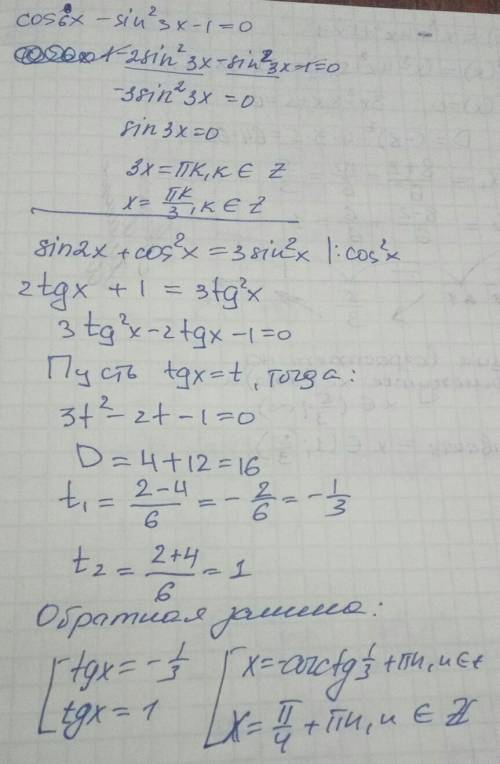 cos6x - sin²3x - 1 = 0
1 - 2sin²3x - sin²3x - 1 = 0
-3sin²3x = 0
sin3x = 0
3x = πk, k ∈ Z
x = πk/3, k ∈ Z
sin2x + cos²x = 3sin²x |: cos²x
2tgx + 1 = 3tg²x
3tg²x - 2tgx - 1 = 0
Пусть tgx = t, тогда:
3t² - 2t - 1 = 0
D = 4 + 12 = 16
t₁ = (2-4)/6 = -2/6 = -1/3
t₂ = (2+4)/6 = 1
Обратная замена:
[ tgx = -1/3 [ x = -arctg 1/3 + πn, n ∈ z
[ tgx = 1 [ x = π/4 + πn, n ∈ Z